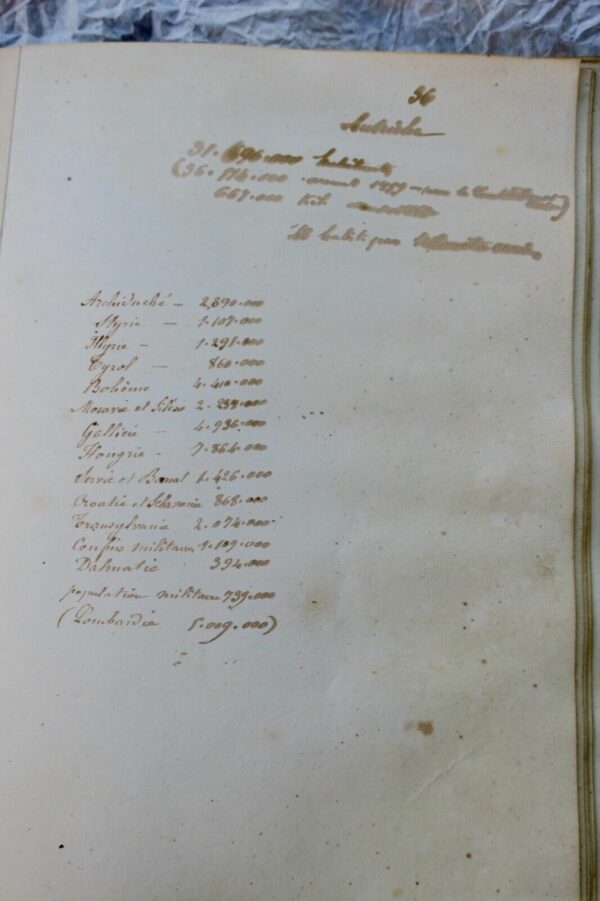 36
Autriche
31.696.000 habitants
(36.514.000 avant 1859
667.000 Kil.
habit. par
Archiduché — 2,890.000
Styrie — 1.107.000
Illyrie — 1.291.000
Tyrol — 860.000
Bohême 4.410.000
Moravie et Silésie 2.238.000
Gallicie — 4.936.000
Hongrie — 7.864.000
Servie et Banat 1.426.000
Croatie et Sclavonie 868.000
Transylvanie 2.074.000
Confins militaires 1.109.000
Dalmatie 394.000
population militaire 739.000
(Lombardie 5.009.000)